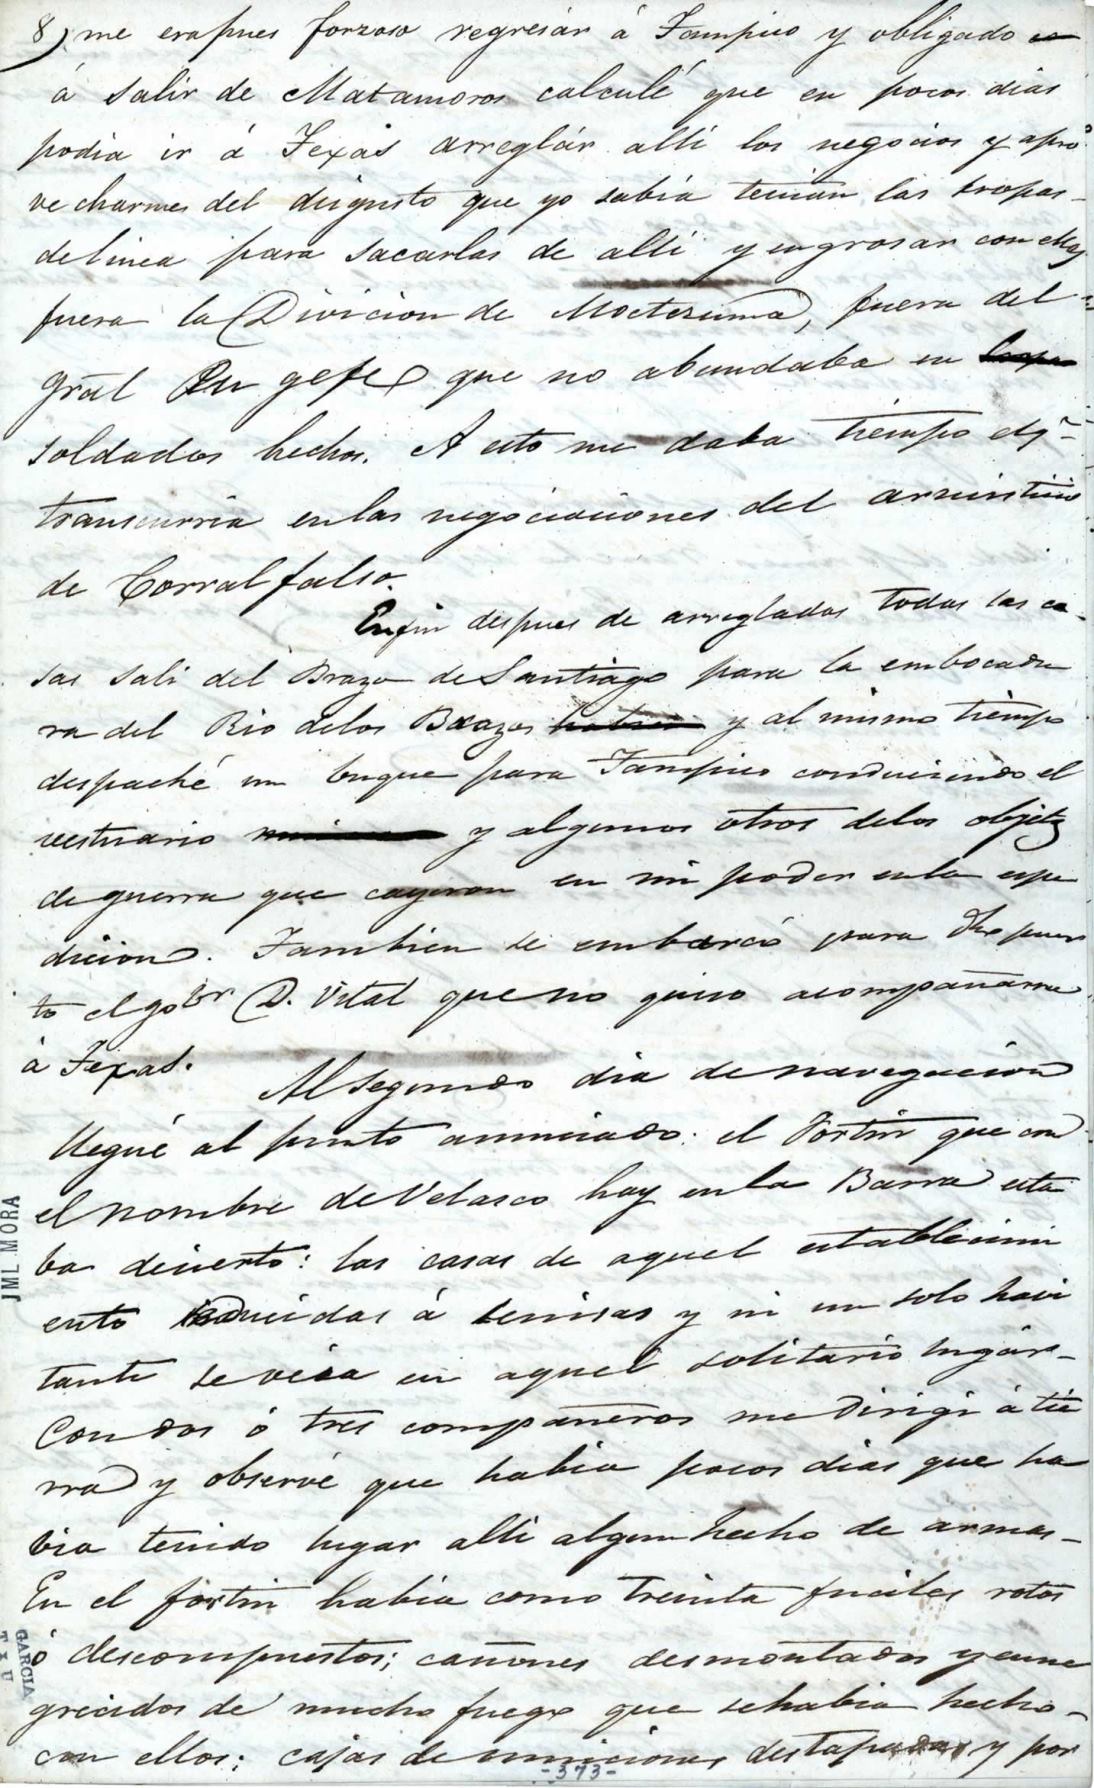 8) me era pues forzoso regresár á Tampico y obligado
á salir de Matamoros calculé que en pocos dias
podia ir á Texas arreglár allí los negocios y apro
vecharme del disgusto que yo sabia tenian las tropas
de linea para sacarlas de allí y engrosar con ellas
fuera la Divicion de Moctesuma, fuera del
Grāl Eu gefe que no abundaba en
soldados hechos. A esto me daba tiempo elq.ᵉ
transcurria en las negociaciones del armisticio
de Corral falso.
En fin despues de arregladas todas las co
sas salí del Brazo de Santiago para la embocadu
ra del Rio delos Brazos y al mismo tiempo
despaché un buque para Tampico conduciendo el
vestuario y algunos otros delos objetos
de guerra que cayeron en mi poder en la espe
dicion. Tambien se embarcó para dho puer
to el gobr D. Vital que no quiso acompañarme
á Texas.
Al segundo dia de navegacion
llegué al punto anunciado: el Fortin que con
el nombre de Velasco hay en la Barra esta
ba dicierto: las casas de aquel establecimi
ento reducidas á cenisas y ni un solo havi
tante se veia en aquel solitario lugár
Con dos ó tres compañeros me dirigí á tie
rra y observé que habia pocos dias que ha
bia tenido lugar allí algun hecho de armas
En el fortin habia como treinta fuciles rotos
ó descompuestos; cañones desmontados y enne
grecidos de mucho fuego que se habia hecho
con ellos; cajas de municiones destapadas y por
-373-
JML. MORA
GARCIA